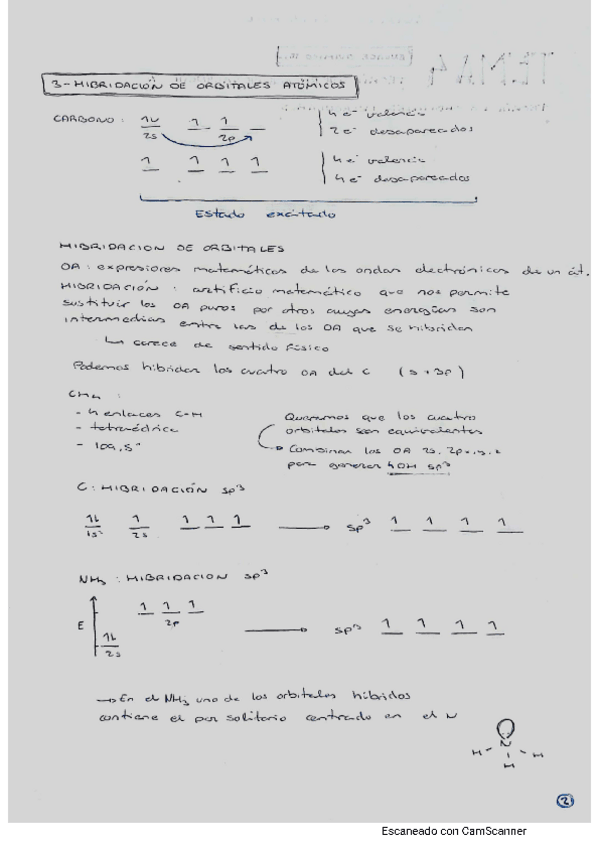 3-HIBRIDACIÓN DE ORBITALES ATÓMICOS
CARBONO: 1L 1 1 | 4 e⁻ valencia
2s 2p | 2 e⁻ desapareados
1 1 1 1 | 4 e⁻ valencia
| 4 e⁻ desapareados
Estado excitado
HIBRIDACION DE ORBITALES
OA: expresiones matemáticas de las ondas electrónicas de un át.
HIBRIDACIÓN: artificio matemático que nos permite
sustituir los OA puros por otros cuyas energías son
intermedias entre las de los OA que se hibridan
↳ carece de sentido físico
Podemos hibridar los cuatro OA del C (s + 3p)
CH₄:
- 4 enlaces C-H
- tetraédrica
- 109,5°
Queremos que los cuatro
orbitales sean equivalentes
→ Combinar los OA 2s, 2px,y,z
para generar 4 OH sp³
C: HIBRIDACIÓN sp³
1L 1 1 1 1 → sp³ 1 1 1 1
1s² 2s
NH₃: HIBRIDACION sp³
1 1 1
2p
E → sp³ 1 1 1 1
1L
2s
→ En el NH₃ uno de los orbitales híbridos
contiene el par solitario centrado en el N
N
H H
H
2
Escaneado con CamScanner